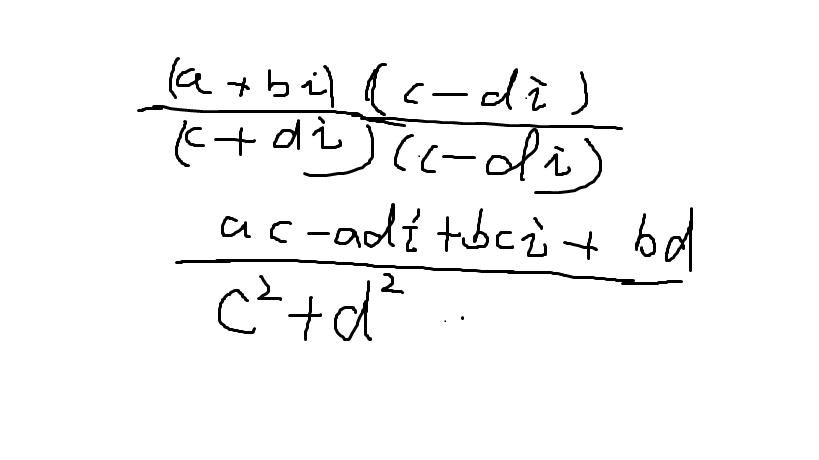 (a + bi) (c - di)
(c + di) (c - di)
ac - adi + bci + bd
c² + d²